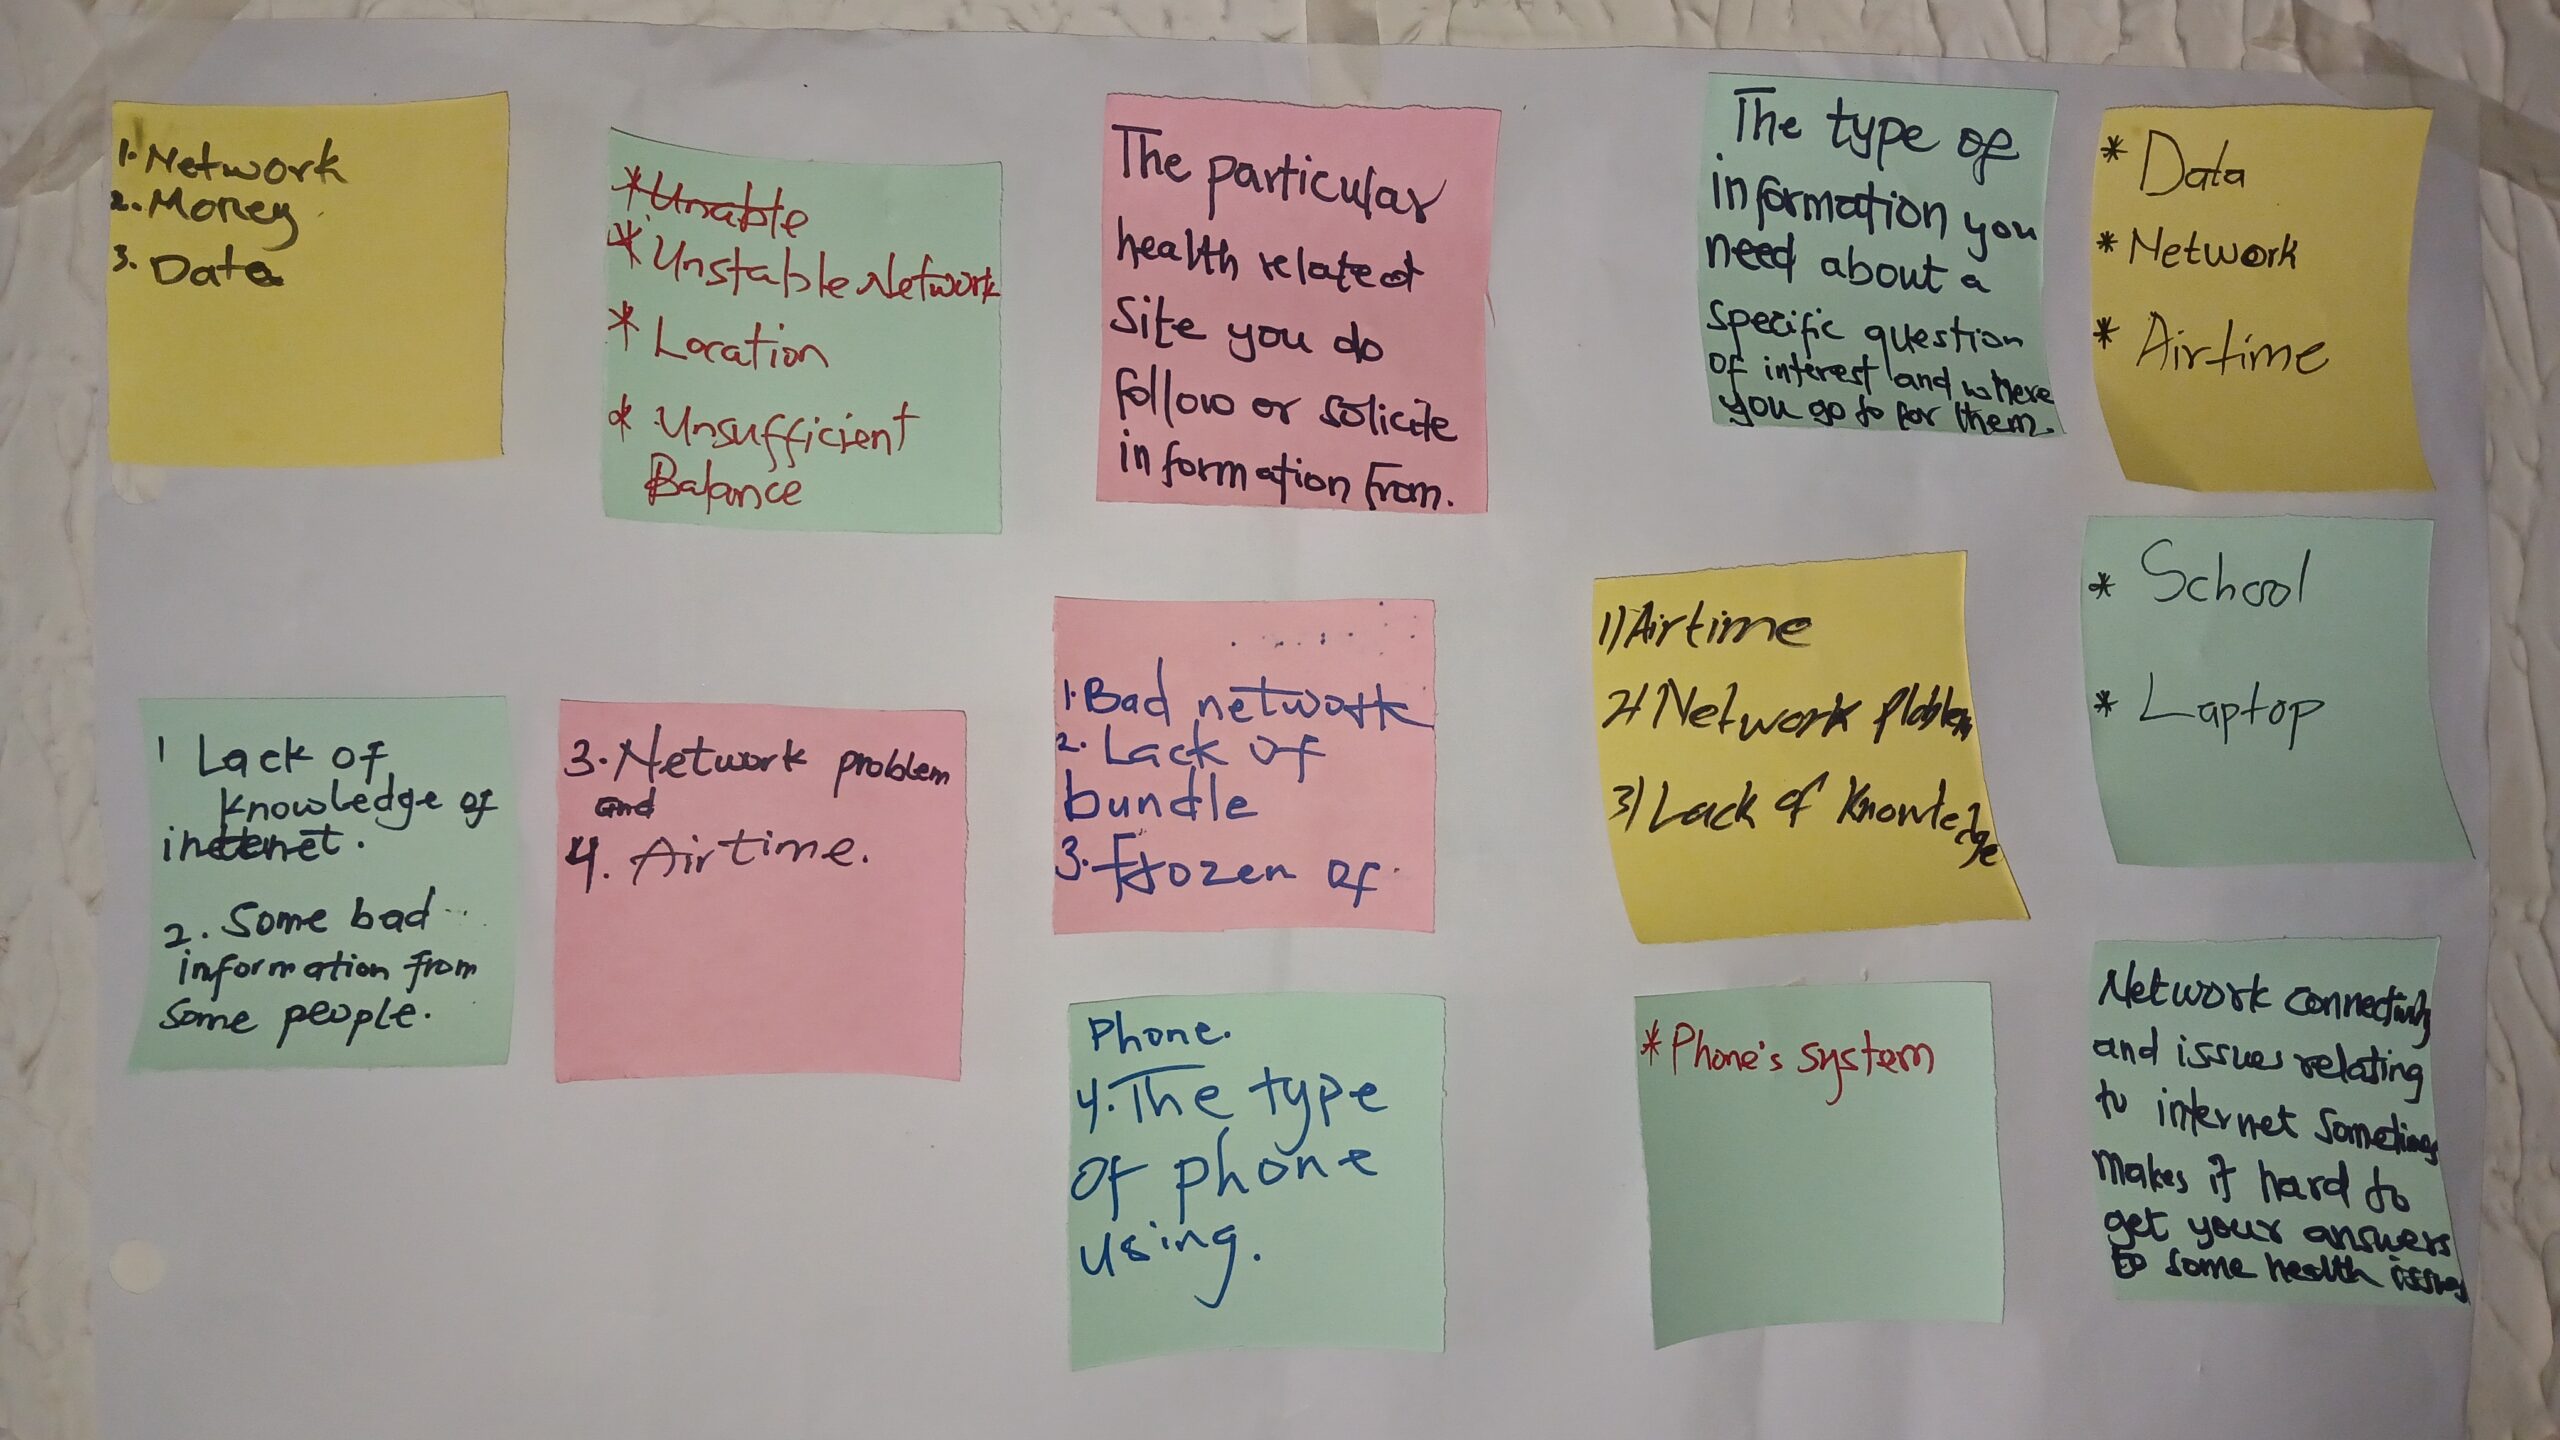 1. Network
2. Money
3. Data
* Unable
* Unstable Network
* Location
* Unsufficient
Balance
The particular
health related
site you do
follow or solicite
information from.
The type of
information you
need about a
specific question
of interest and where
you go to for them.
* Data
* Network
* Airtime
1 Lack of
knowledge of
internet.
2. Some bad
information from
some people.
3. Network problem
and
4. Airtime.
1. Bad network
2. Lack of
bundle
3. Frozen of
Phone.
4. The type
of phone
using.
1) Airtime
2) Network Problem
3) Lack of Knowledge
* Phone's system
* School
* Laptop
Network connectivity
and issues relating
to internet sometimes
makes it hard to
get your answers
to some health issues